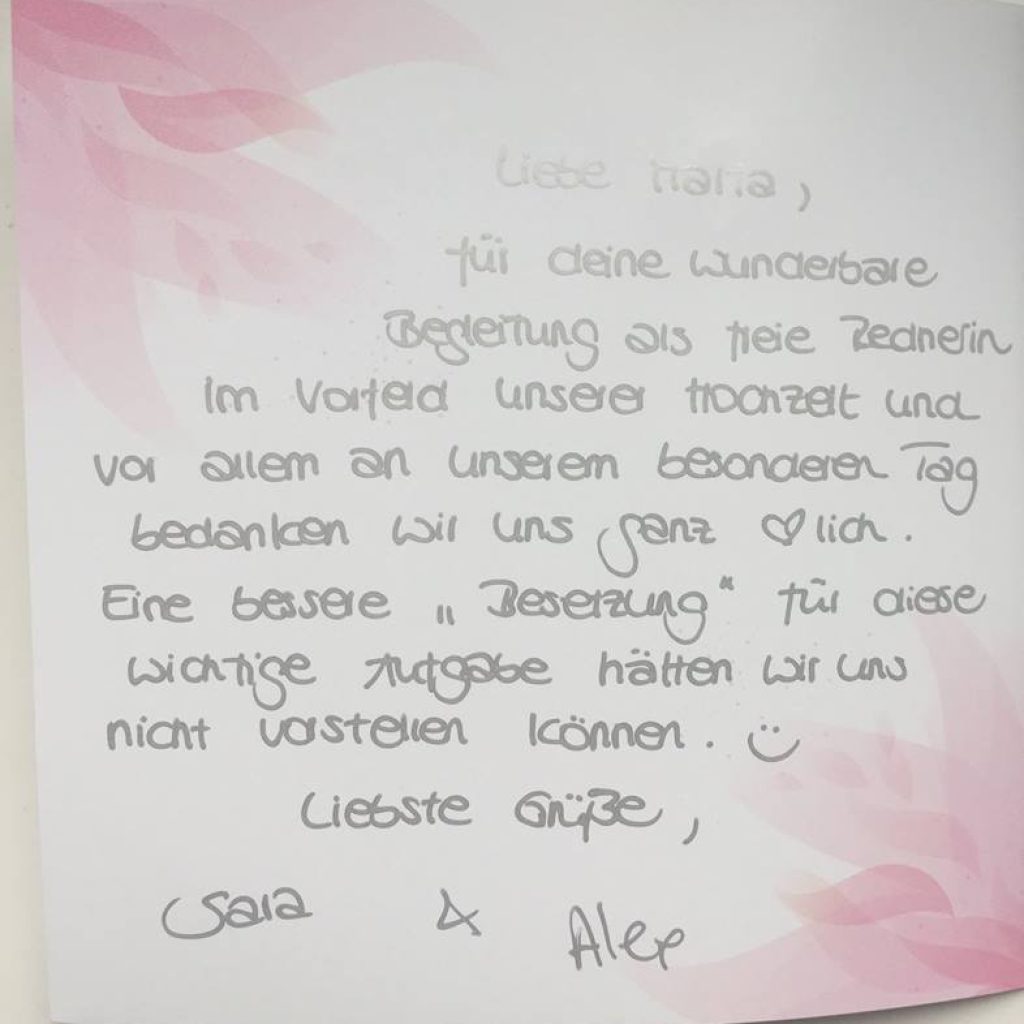 Liebe Maria,
für deine wunderbare
Begleitung als freie Rednerin
Im Vorfeld unserer Hochzeit und
vor allem an unserem besonderen Tag
bedanken wir uns ganz ♡lich.
Eine bessere „Besetzung“ für diese
wichtige Aufgabe hätten wir uns
nicht vorstellen können. ☺
Liebste Grüße,
Sara & Alex